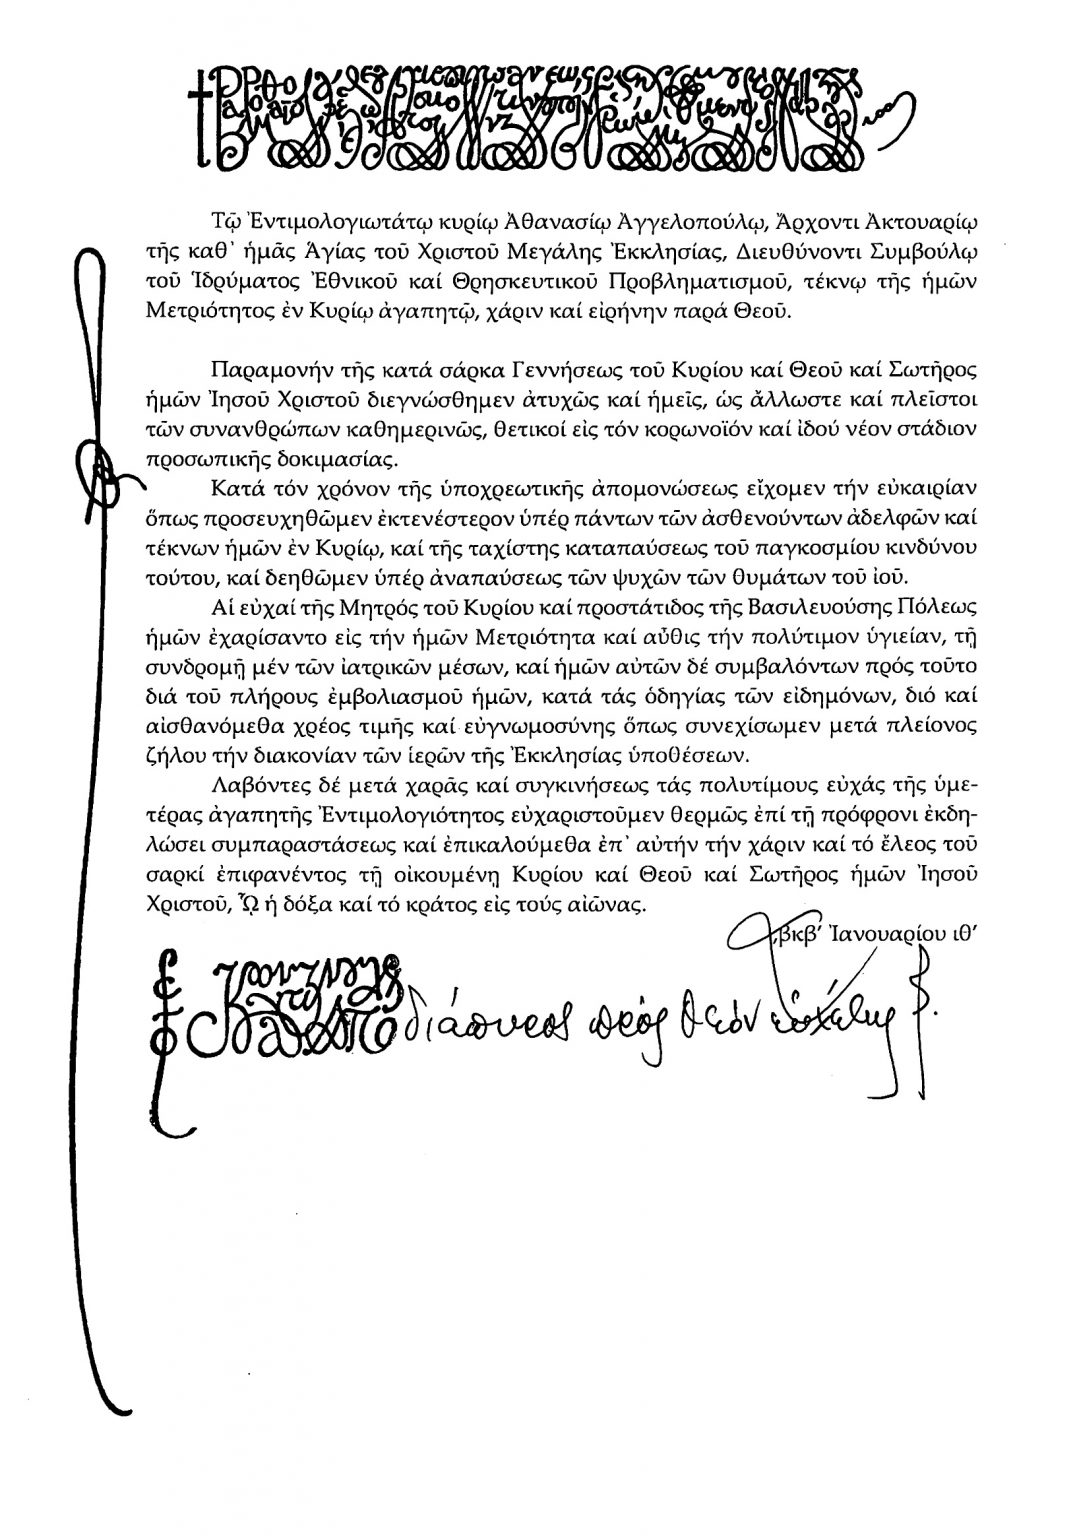 Τῷ Ἐντιμολογιωτάτῳ κυρίῳ Ἀθανασίῳ Ἀγγελοπούλῳ, Ἄρχοντι Ἀκτουαρίῳ
τῆς καθ᾽ ἡμᾶς Ἁγίας τοῦ Χριστοῦ Μεγάλης Ἐκκλησίας, Διευθύνοντι Συμβούλῳ
τοῦ Ἱδρύματος Ἐθνικοῦ καί Θρησκευτικοῦ Προβληματισμοῦ, τέκνῳ τῆς ἡμῶν
Μετριότητος ἐν Κυρίῳ ἀγαπητῷ, χάριν καί εἰρήνην παρά Θεοῦ.
Παραμονήν τῆς κατά σάρκα Γεννήσεως τοῦ Κυρίου καί Θεοῦ καί Σωτῆρος
ἡμῶν Ἰησοῦ Χριστοῦ διεγνώσθημεν ἀτυχῶς καί ἡμεῖς, ὡς ἄλλωστε καί πλεῖστοι
τῶν συνανθρώπων καθημερινῶς, θετικοί εἰς τόν κορωνοϊόν καί ἰδού νέον στάδιον
προσωπικῆς δοκιμασίας.
Κατά τόν χρόνον τῆς ὑποχρεωτικῆς ἀπομονώσεως εἴχομεν τήν εὐκαιρίαν
ὅπως προσευχηθῶμεν ἐκτενέστερον ὑπέρ πάντων τῶν ἀσθενούντων ἀδελφῶν καί
τέκνων ἡμῶν ἐν Κυρίῳ, καί τῆς ταχίστης καταπαύσεως τοῦ παγκοσμίου κινδύνου
τούτου, καί δεηθῶμεν ὑπέρ ἀναπαύσεως τῶν ψυχῶν τῶν θυμάτων τοῦ ἰοῦ.
Αἱ εὐχαί τῆς Μητρός τοῦ Κυρίου καί προστάτιδος τῆς Βασιλευούσης Πόλεως
ἡμῶν ἐχαρίσαντο εἰς τήν ἡμῶν Μετριότητα καί αὖθις τήν πολύτιμον ὑγιείαν, τῇ
συνδρομῇ μέν τῶν ἰατρικῶν μέσων, καί ἡμῶν αὐτῶν δέ συμβαλόντων πρός τοῦτο
διά τοῦ πλήρους ἐμβολιασμοῦ ἡμῶν, κατά τάς ὁδηγίας τῶν εἰδημόνων, διό καί
αἰσθανόμεθα χρέος τιμῆς καί εὐγνωμοσύνης ὅπως συνεχίσωμεν μετά πλείονος
ζήλου τήν διακονίαν τῶν ἱερῶν τῆς Ἐκκλησίας ὑποθέσεων.
Λαβόντες δέ μετά χαρᾶς καί συγκινήσεως τάς πολυτίμους εὐχάς τῆς ὑμε-
τέρας ἀγαπητῆς Ἐντιμολογιότητος εὐχαριστοῦμεν θερμῶς ἐπί τῇ πρόφρονι ἐκδη-
λώσει συμπαραστάσεως καί ἐπικαλούμεθα ἐπ᾽ αὐτήν τήν χάριν καί τό ἔλεος τοῦ
σαρκί ἐπιφανέντος τῇ οἰκουμένῃ Κυρίου καί Θεοῦ καί Σωτῆρος ἡμῶν Ἰησοῦ
Χριστοῦ, ᾯ ἡ δόξα καί τό κράτος εἰς τούς αἰῶνας.
͵βκβ′ Ἰανουαρίου ιθ′
διάπυρος πρός Θεόν εὐχέτης